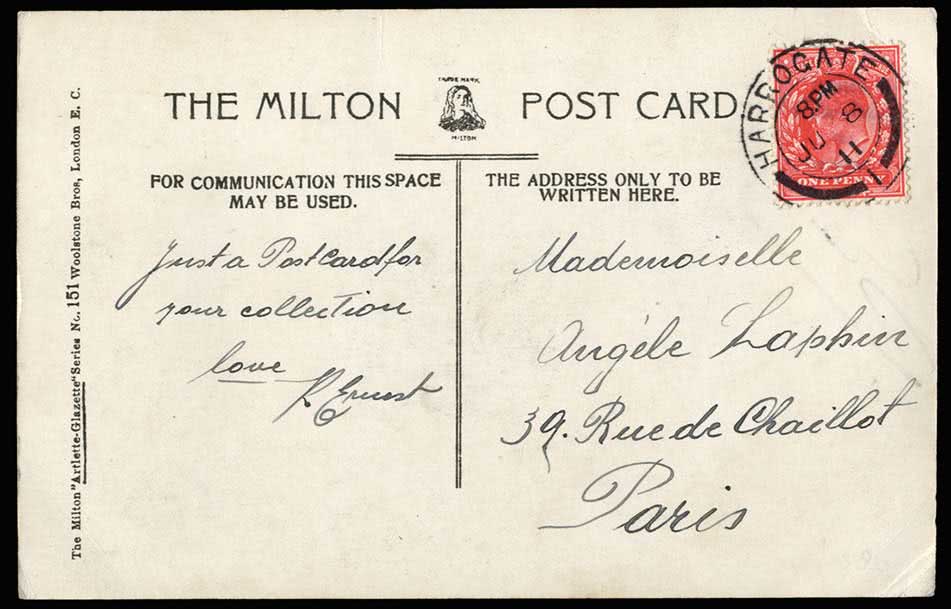 THE MILTON POST CARD
TRADE MARK
MILTON
FOR COMMUNICATION THIS SPACE
MAY BE USED.
THE ADDRESS ONLY TO BE
WRITTEN HERE.
HARROGATE
8 PM
JU 8
11
ONE PENNY
Just a Postcard for
your collection
love
R Ernest
Mademoiselle
Angèle Laphin
39. Rue de Chaillot
Paris
The Milton "Artlette-Glazette" Series No. 151 Woolstone Bros, London E. C.